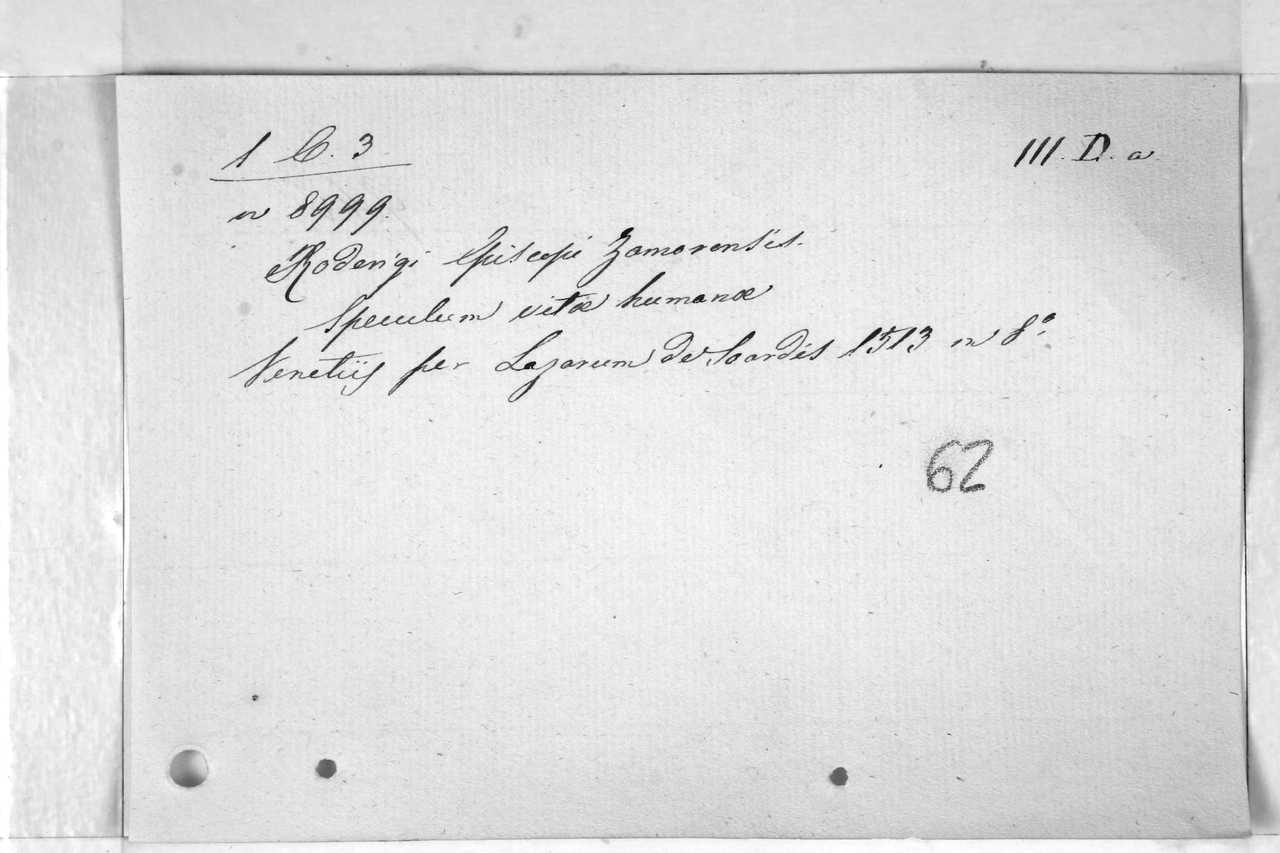 1 C. 3
III. D. a
n 8999.
Roderigi Episcopi Zamorensis.
Speculum vitæ humanæ
Venetiis per Lazarum de Soardis 1513 in 8º
62